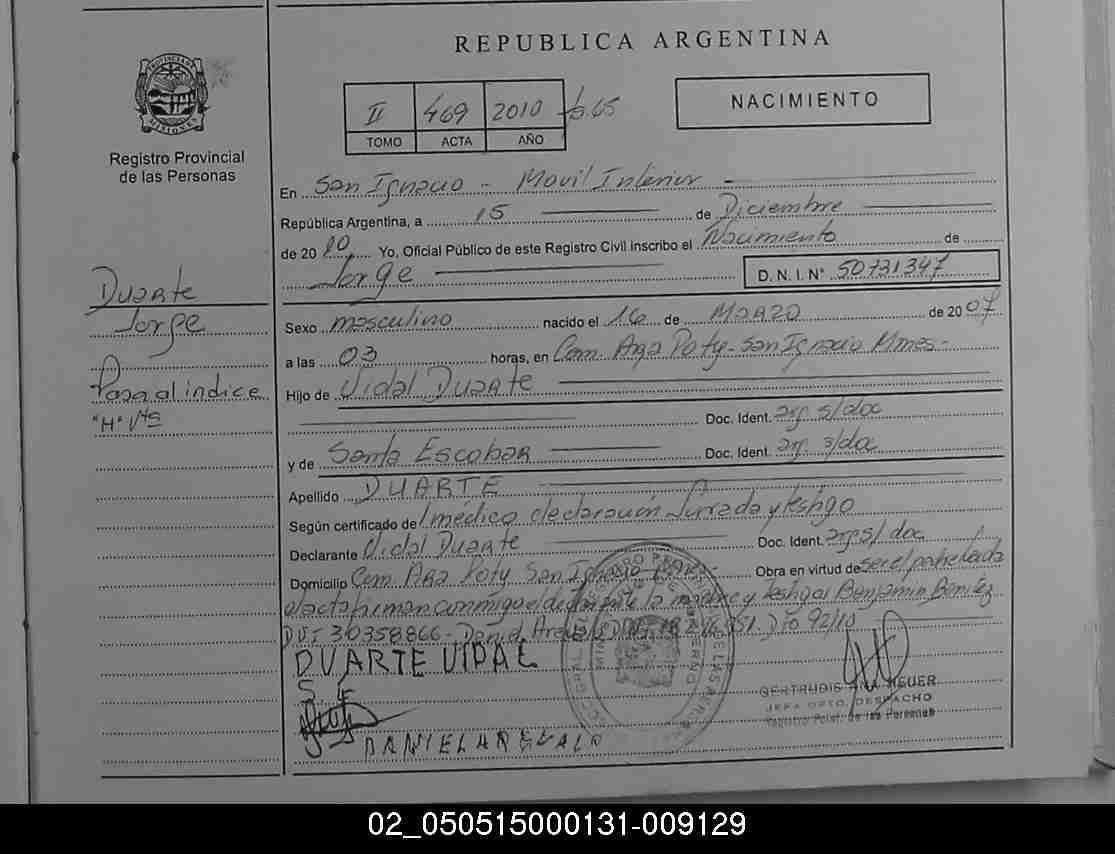 REPUBLICA ARGENTINA
PROVINCIA DE MISIONES
Registro Provincial
de las Personas
II 469 2010 Fº 65
TOMO ACTA AÑO
NACIMIENTO
En San Ignacio - Movil Interior
República Argentina, a 15 de Diciembre
de 2010 Yo, Oficial Público de este Registro Civil inscribo el Nacimiento de
Jorge D.N.I.Nº 50731347
Duarte
Jorge
Pasa al indice
"H" Vta
Sexo masculino nacido el 16 de MARZO de 2007
a las 03 horas, en Com. Ara Poty - San Ignacio Mnes -
Hijo de Vidal Duarte
Doc. Ident. arg. s/doc
y de Santa Escobar Doc. Ident. arg. s/doc
Apellido DUARTE
Según certificado de médico declaración Jurada y testigo
Declarante Vidal Duarte Doc. Ident. arg. s/doc
Domicilio Com. Ara Poty San Ignacio Obra en virtud de ser el padre leida
el acta firman conmigo el la madre y testigos Benjamin Benitez
DNI 30358866 - Daniel DNI Dto 92/10
DUARTE VIDAL
S E
DANIEL AREVALO
GERTRUDIS ANA HEUER
JEFA DPTO. DESPACHO
Registro Pcial. de las Personas
02_050515000131-009129